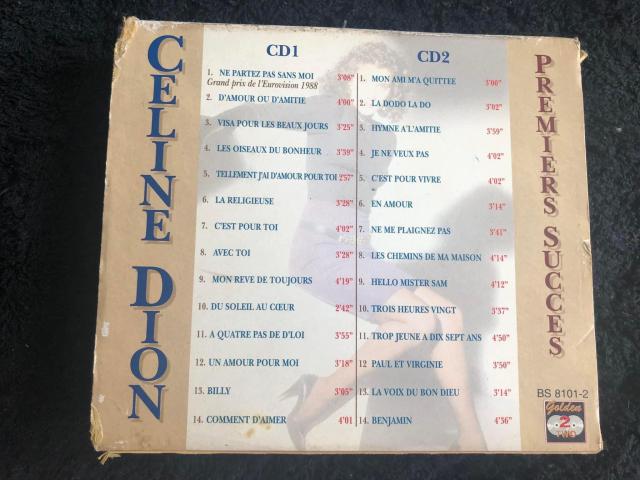 CELINE DION
CD1
1. NE PARTEZ PAS SANS MOI 3'08"
Grand prix de l'Eurovision 1988
2. D'AMOUR OU D'AMITIE 4'00"
3. VISA POUR LES BEAUX JOURS 3'25"
4. LES OISEAUX DU BONHEUR 3'39"
5. TELLEMENT J'AI D'AMOUR POUR TOI 2'57"
6. LA RELIGIEUSE 3'28"
7. C'EST POUR TOI 4'02"
8. AVEC TOI 3'28"
9. MON REVE DE TOUJOURS 4'19"
10. DU SOLEIL AU CŒUR 2'42"
11. A QUATRE PAS DE D'LOI 3'55"
12. UN AMOUR POUR MOI 3'18"
13. BILLY 3'05"
14. COMMENT D'AIMER 4'01
CD2
1. MON AMI M'A QUITTEE 3'00"
2. LA DODO LA DO 3'02"
3. HYMNE A'LAMITIE 3'59"
4. JE NE VEUX PAS 4'02"
5. C'EST POUR VIVRE 4'02"
6. EN AMOUR 3'14"
7. NE ME PLAIGNEZ PAS 3'41"
8. LES CHEMINS DE MA MAISON 4'14"
9. HELLO MISTER SAM 4'12"
10. TROIS HEURES VINGT 3'37"
11. TROP JEUNE A DIX SEPT ANS 4'50"
12 PAUL ET VIRGINIE 3'50"
13. LA VOIX DU BON DIEU 3'14"
14. BENJAMIN 4'36"
PREMIERS SUCCES
BS 8101-2
Golden
2
TWO